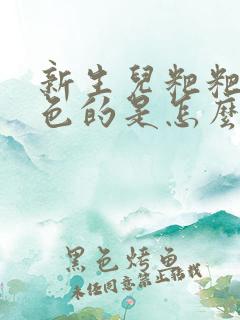 新生兒粑粑
色的是怎麼
黑色烤魚
未经同意禁止转载